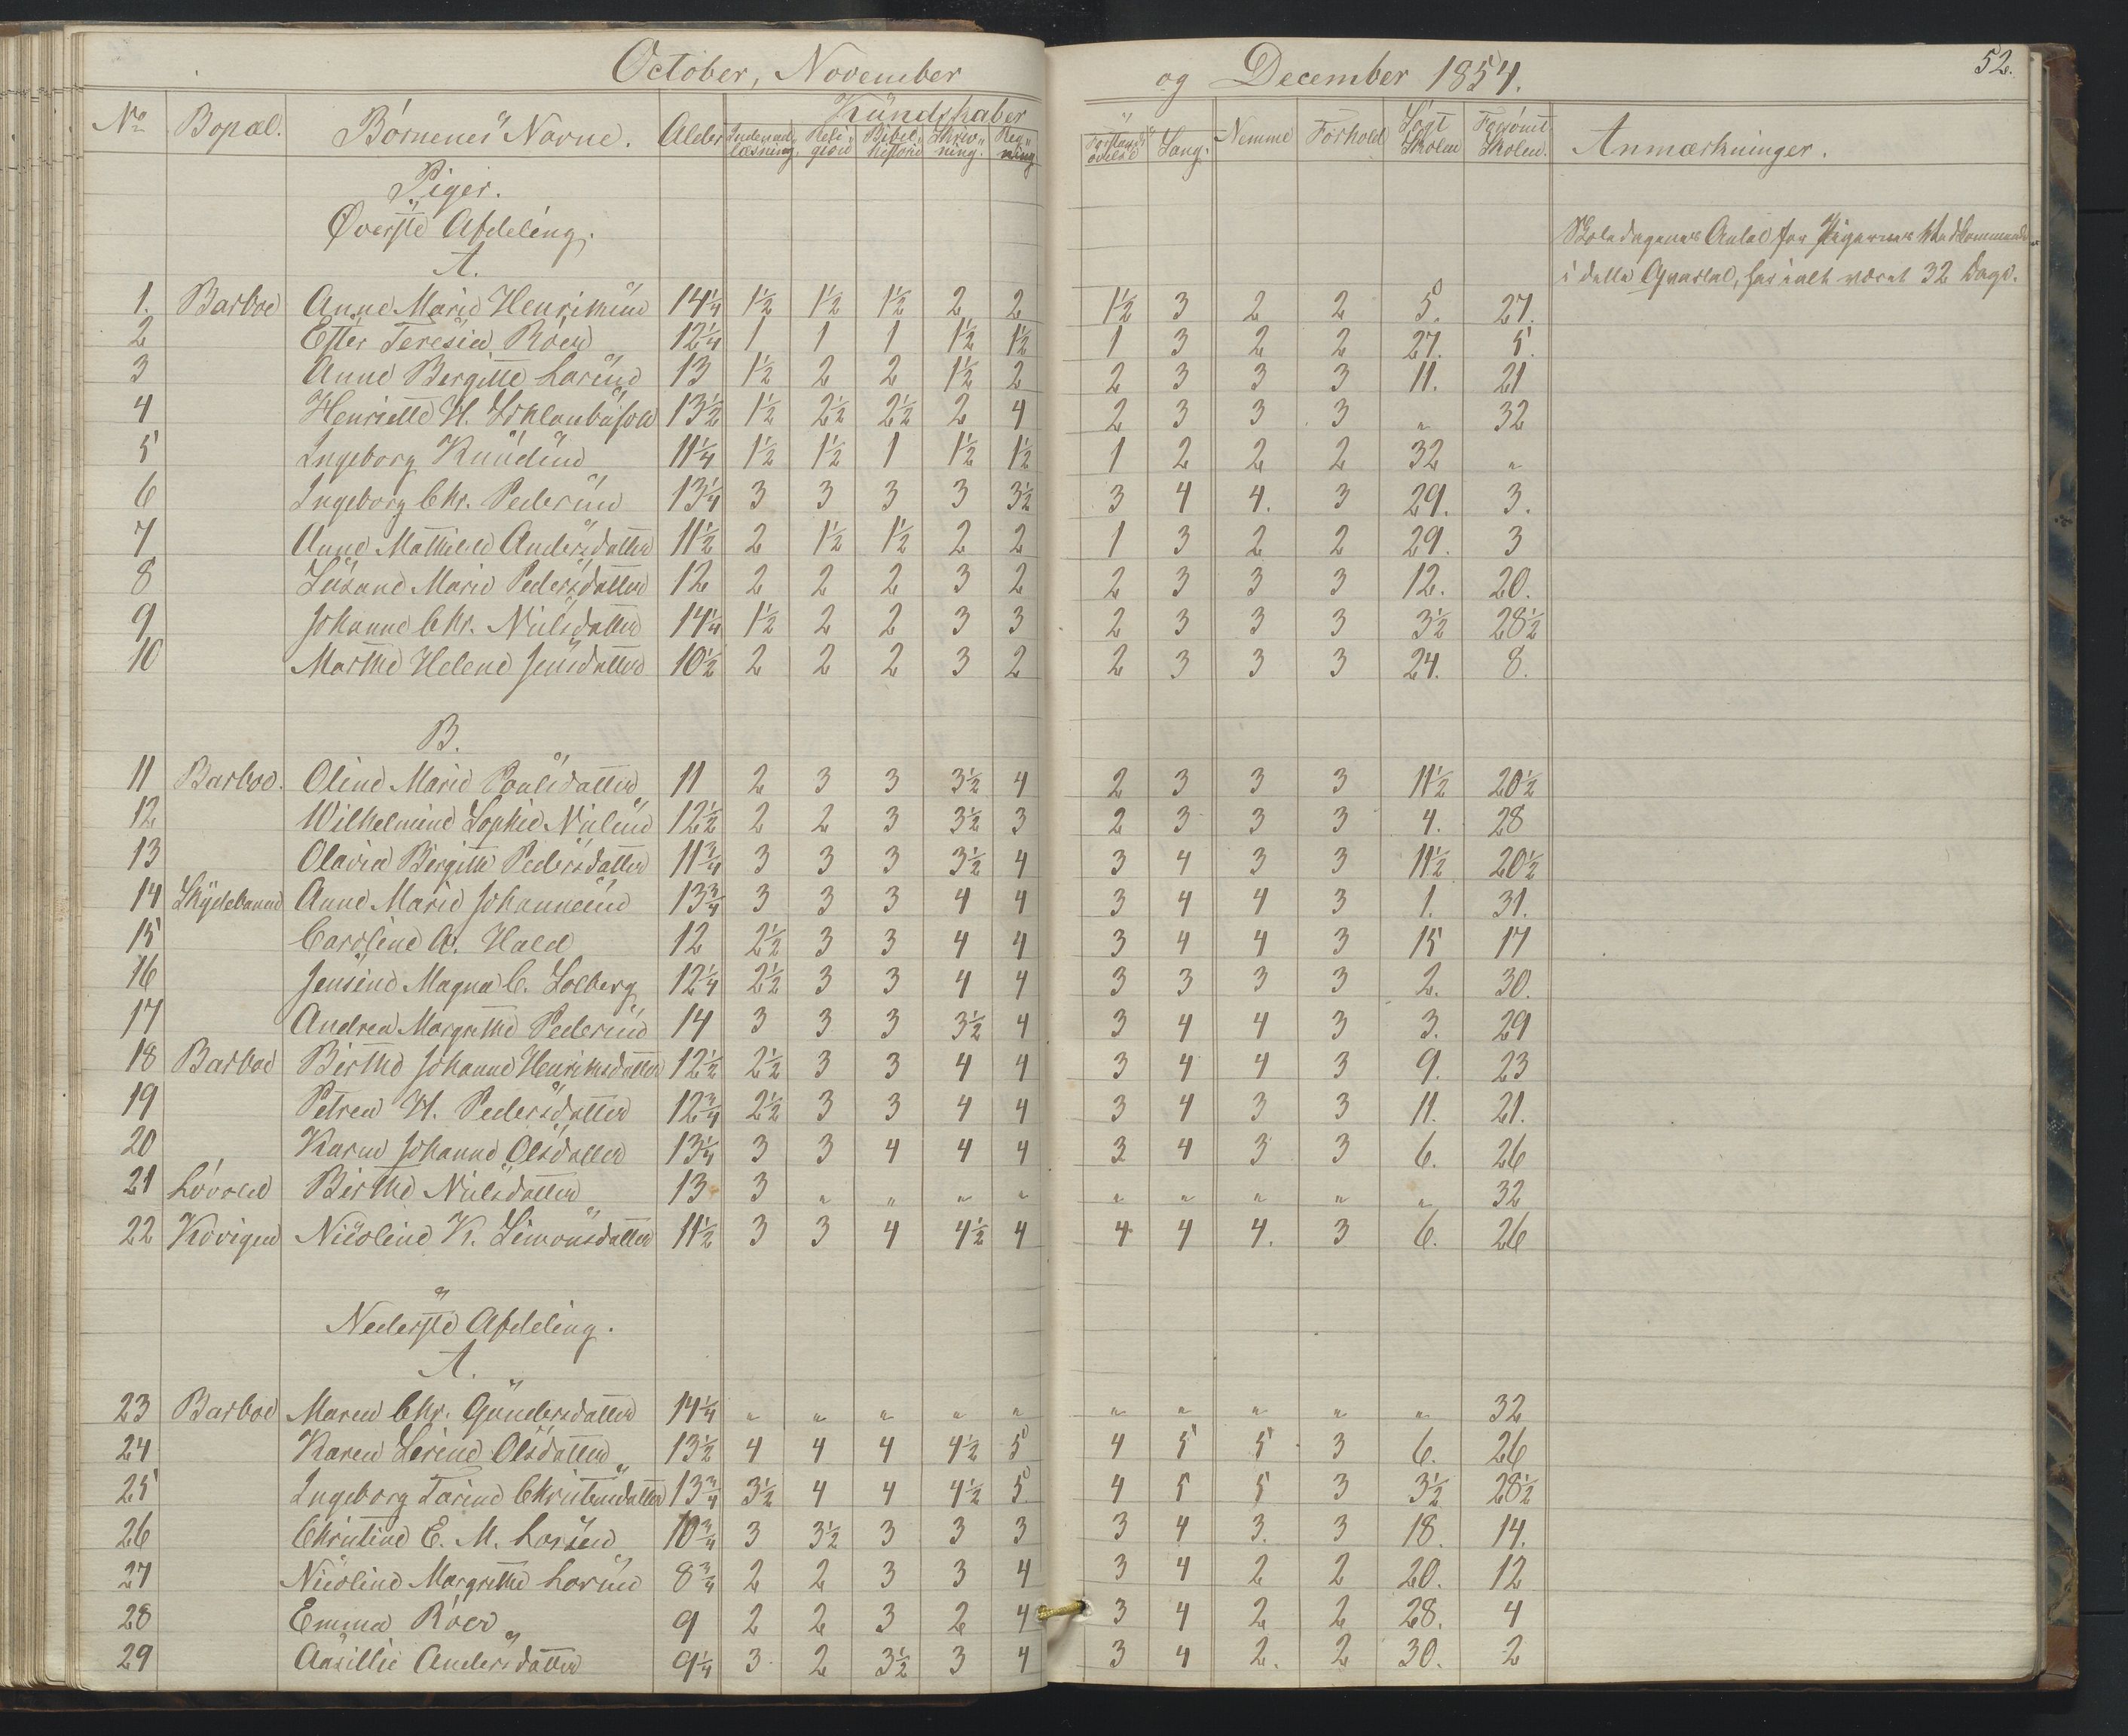 October, November og December 1854. 52.
No Bopæl. Børnenes Navne. Alder Kundskaber
Indenadlæsning. Religion Bibelhistorie Skrivning. Regning Forstandsøvelse Sang. Nemme Forhold Søgt Skolen Forsømt Skolen. Anmærkninger.
Piger.
Øverste Afdeling.
A.
Skoledagenes Antal for Pigernes Vedkommende
i dette Qvartal, har ialt været 32 Dage.
1. Barboe Anne Marie Henriksen 14¼ 1½ 1½ 1½ 2 2 1½ 3 2 2 5. 27.
2 Ester Teresia Röer 12¼ 1 1 1 1½ 1½ 1 3 2 2 27. 5.
3 Anne Bergitte Larsen 13 1½ 2 2 1½ 2 2 3 3 3 11. 21
4 Henriette W. 13½ 1½ 2½ 2½ 2 4 2 3 3 3 " 32
5 Ingeborg Knudsen 11¼ 1½ 1½ 1 1½ 1½ 1 2 2 2 32 "
6 Ingeborg Chr. Pedersen 13¼ 3 3 3 3 3½ 3 4 4. 3 29. 3.
7 Anne Mathilde Andersdatter 11½ 2 1½ 1½ 2 2 1 3 2 2 29. 3
8 Susane Marie Pedersdatter 12 2 2 2 3 2 2 3 3 3 12. 20.
9 Johanne Chr. Nilsdatter 14¼ 1½ 2 2 3 3 2 3 3 3 3½ 28½
10 Marthe Helene Jensdatter 10½ 2 2 2 3 2 2 3 3 3 24. 8.
B.
11 Barboe. Oline Marie Poulsdatter 11 2 3 3 3½ 4 2 3 3 3 11½ 20½
12 Wilhelmine Sophie Nilsen 12½ 2 2 3 3½ 3 2 3 3 3 4. 28
13 Olavia Birgitte Pedersdatter 11¾ 3 3 3 3½ 4 3 4 3 3 11½ 20½
14 Skydebanen Anne Marie Johannesen 13¾ 3 3 3 4 4 3 4 4 3 1. 31.
15 Caroline A. Hald 12 2½ 3 3 4 4 3 4 4 3 15 17
16 Jensine Magna C. Solberg 12¼ 2½ 3 3 4 4 3 3 3 3 2. 30.
17 Andrea Margrethe Pedersen 14 3 3 3 3½ 4 3 4 4 3 3. 29
18 Barboe Birthe Johanne Henriksdatter 12½ 2½ 3 3 4 4 3 4 4 3 9. 23
19 Petrea W. Pedersdatter 12¾ 2½ 3 3 4 4 3 4 3 3 11. 21.
20 Karen Johanne Olsdatter 13¼ 3 3 4 4 4 3 4 3 3 6. 26
21 Løvold Birthe Nilsdatter 13 3 " " " " " " " " " 32
22 Kovigen Nicoline K. Simonsdatter 11½ 3 3 4 4½ 4 4 4 4. 3 6. 26
Nederste Afdeling.
A.
23 Barboe Maren Chr. Gundersdatter 14¼ " " " " " " " " " " 32
24 Karen Serine Olsdatter 13½ 4 4 4 4½ 5 4 5 5 3 6. 26
25 Ingeborg Tarine Christensdatter 13¾ 3½ 4 4 4½ 5. 4 5 5 3 3½ 28½
26 Christine E. M. Larsen 10¾ 3 3½ 3 3 3 3 4 3. 3 18. 14.
27 Nicoline Margrethe Larsen 8¾ 2 2 3 3 4 3 4 2 2 20. 12
28 Emma Röer 9 2 2 3 2 4 3 4 2 2 28. 4
29 Aasillie Andersdatter 9¼ 3 2 3½ 3 4 3 4 2. 2 30. 2